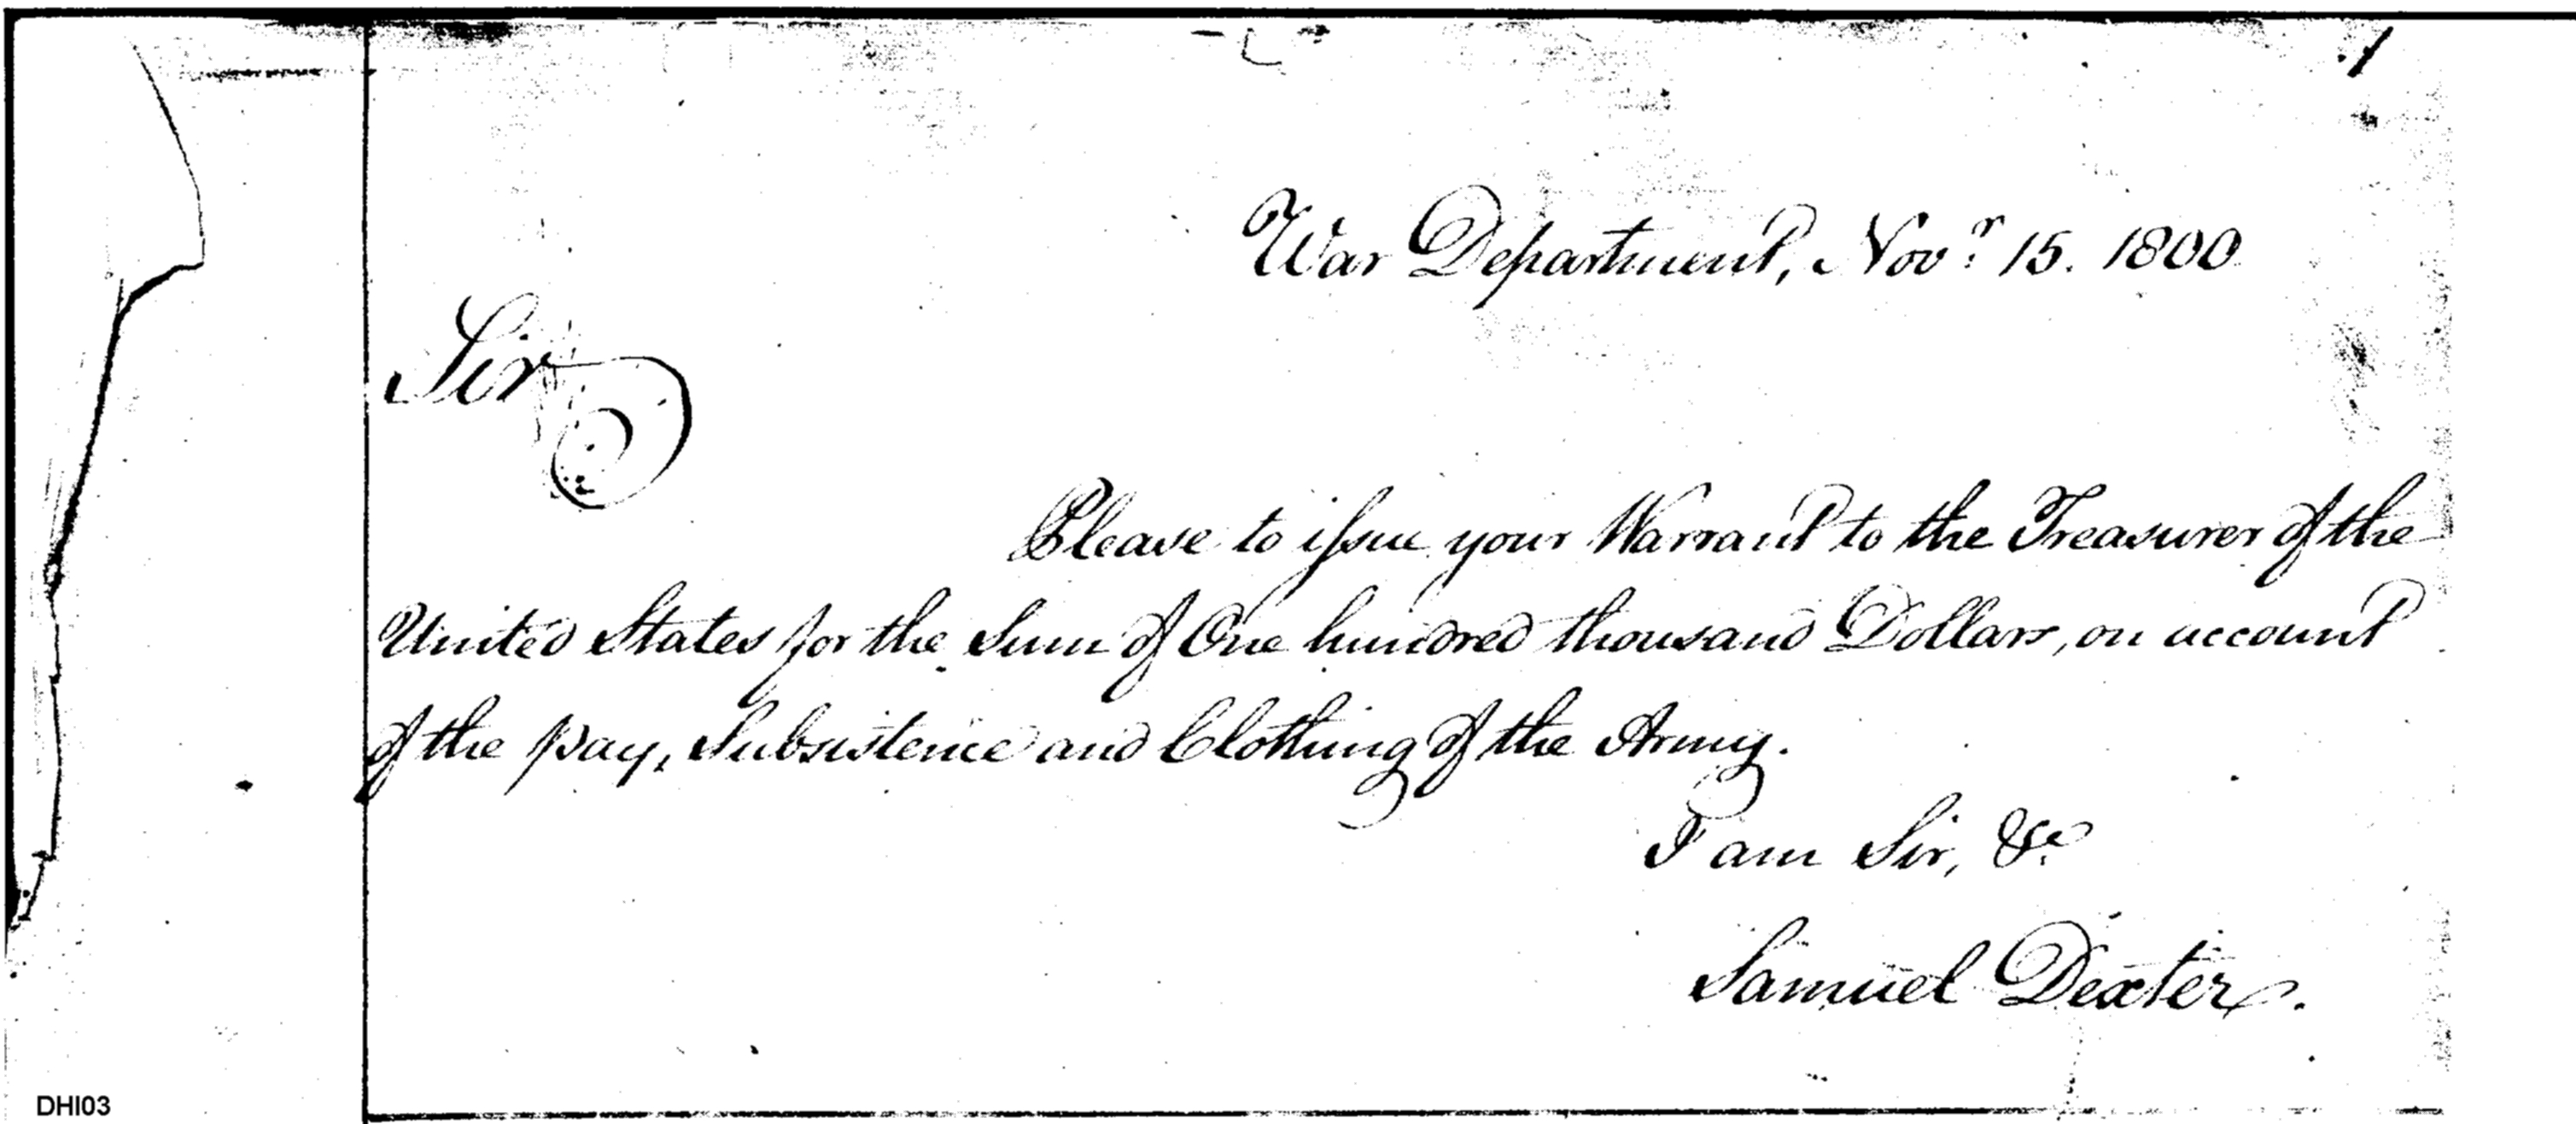 1
War Department, Novr. 15. 1800
Sir
Please to issue your Warrant to the Treasurer of the
United States for the Sum of One hundred thousand Dollars, on account
of the pay, Subsistence and Clothing of the Army.
I am Sir, &c.
Samuel Dexter.
DHI03